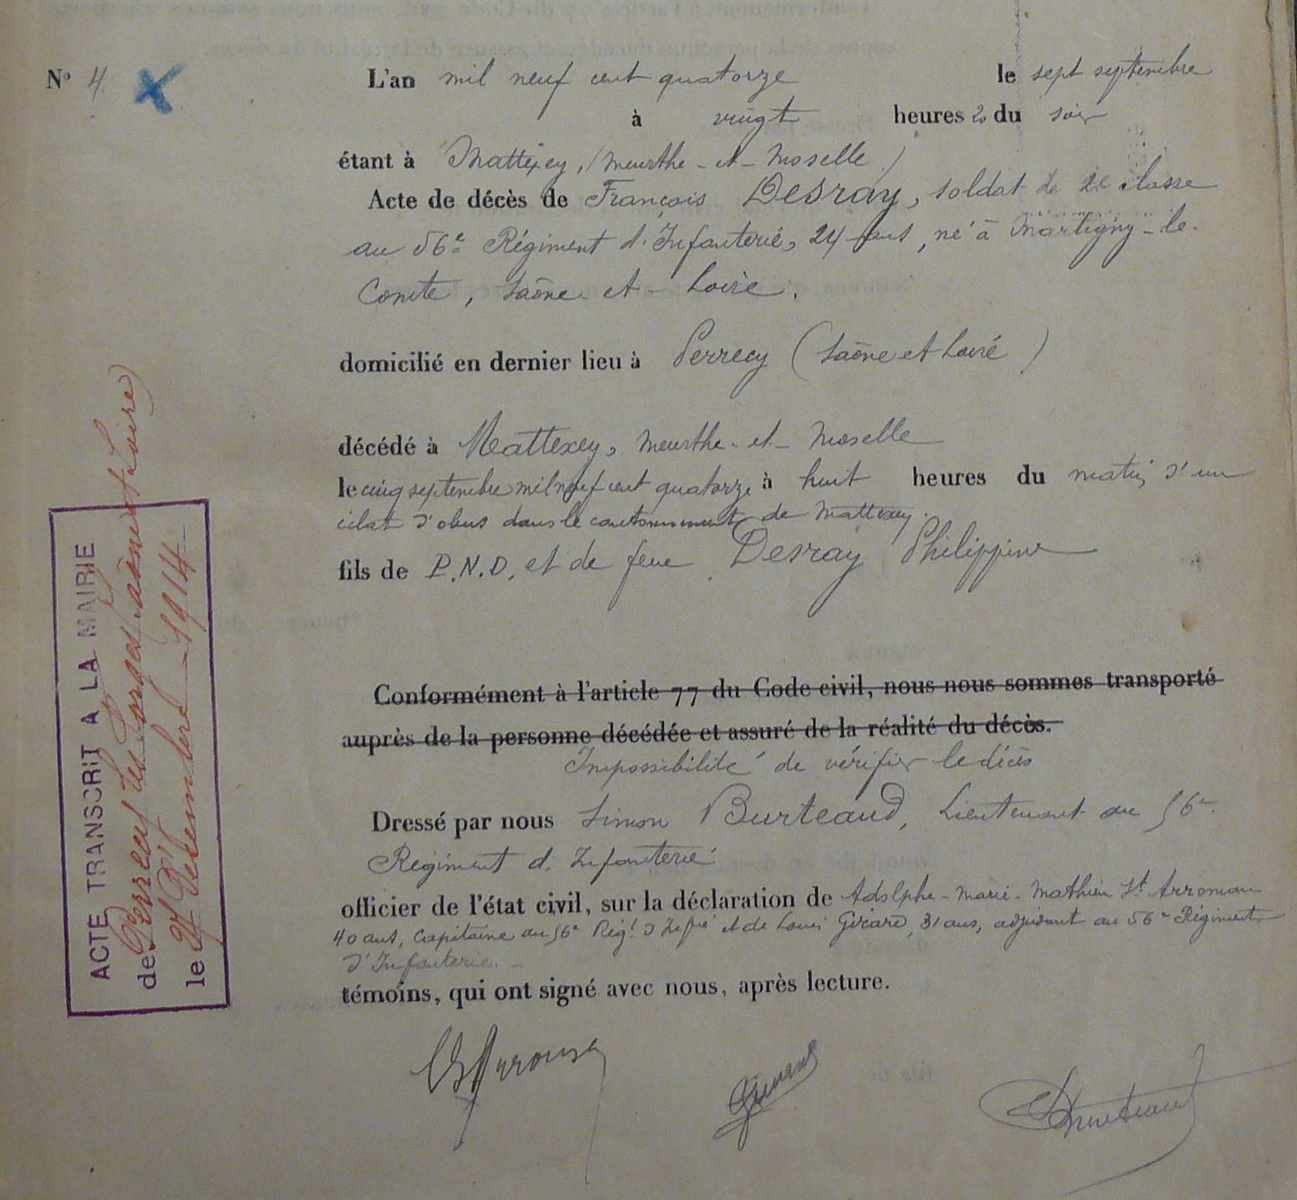 N° 4
L'an mil neuf cent quatorze le sept septembre
à vingt heures du soir
étant à Mattexey, (Meurthe-et-Moselle)
Acte de décès de François Desray, soldat de 2e classe
au 56e Régiment d'Infanterie, 24 ans, né à Martigny-le-
Comte, Saône-et-Loire.
domicilié en dernier lieu à Perrecy (Saône et Loire)
décédé à Mattexey, Meurthe-et-Moselle
le cinq septembre mil neuf cent quatorze à huit heures du matin d'un
éclat d'obus dans le cantonnement de Mattexey.
fils de P.N.D. et de feue Desray Philippine
Conformément à l'article 77 du Code civil, nous nous sommes transporté
auprès de la personne décédée et assuré de la réalité du décès.
Impossibilité de vérifier le décès
Dressé par nous Simon Burteaud, Lieutenant au 56e
Régiment d'Infanterie
officier de l'état civil, sur la déclaration de Adolphe-Marie-Mathieu
40 ans, Capitaine au 56e Régt d'Infie et de Louis 31 ans, adjudant au 56e Régiment
d'Infanterie.
témoins, qui ont signé avec nous, après lecture.
ACTE TRANSCRIT A LA MAIRIE
de Perrecy les Forges (Saône et Loire)
le Septembre 1914